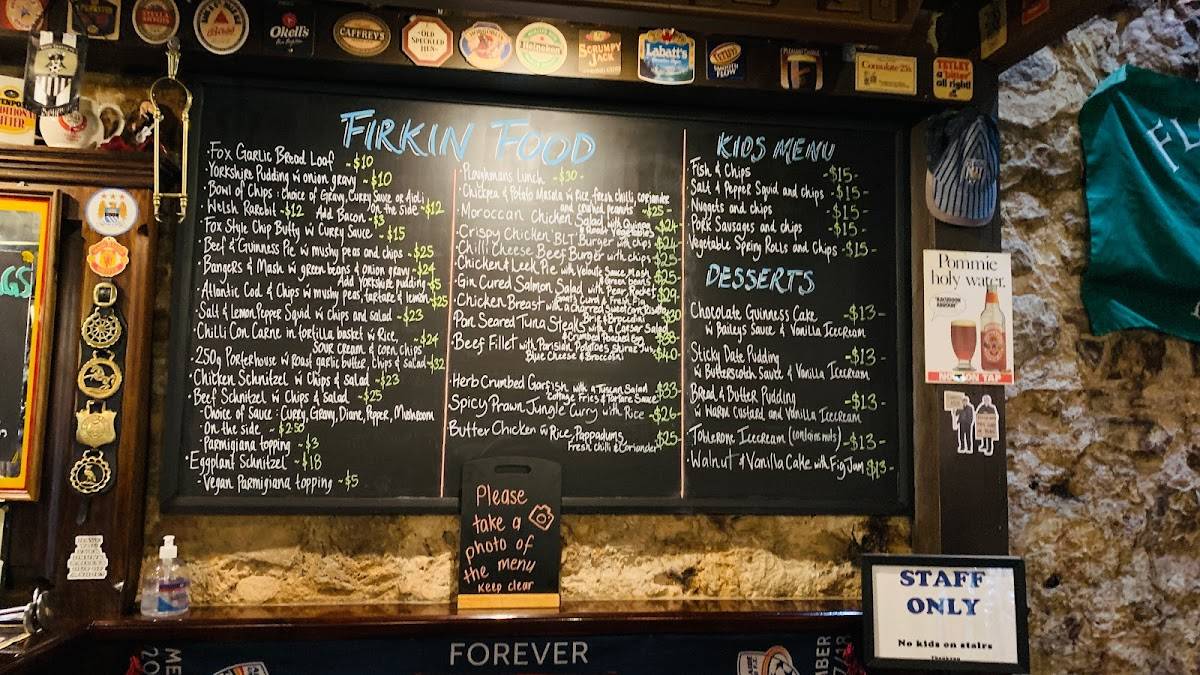 Okell's
CAFFREY'S
OLD SPECKLED HEN
Heineken
SCRUMPY JACK
Labatt's
SMOOTH FLOW
Consulate 25's
TETLEY
a bitter
all right!
FIRKIN FOOD
·Fox Garlic Bread Loaf -$10
Yorkshire Pudding w onion gravy -$10
·Bowl of Chips : choice of Gravy, Curry Sauce or Aioli
On the side -$12
Welsh Rarebit -$12 Add Bacon -$5
·Fox Style Chip Butty w Curry Sauce -$15
·Beef & Guinness Pie w mushy peas and chips -$25
·Bangers & Mash w green beans & onion gravy -$24
Add Yorkshire pudding $5
·Atlantic Cod & Chips w mushy peas, tartare & lemon -$25
·Salt & Lemon Pepper Squid w chips and salad -$23
·Chilli Con Carne in tortilla basket w Rice, -$24
Sour Cream & Corn Chips
·250g Porterhouse w roast garlic butter, Chips & Salad -$32
·Chicken Schnitzel w Chips & Salad -$23
·Beef Schnitzel w Chips & Salad -$25
-Choice of Sauce: Curry, Gravy, Diane, Pepper, Mushroom
-On the side -$2.50
-Parmigiana topping -$3
·Eggplant Schnitzel -$18
-Vegan Parmigiana topping -$5
·Ploughmans Lunch -$30-
·Chickpea & Potato Masala w Rice, fresh chilli, coriander
and crushed peanuts -$25-
·Moroccan Chicken Salad with Quinoa
& Roast Vegetables -$24-
·Crispy Chicken BLT Burger with chips -$24
·Chilli Cheese Beef Burger with chips $25
·Chicken & Leek Pie with Veloute Sauce, Mash
& Green Beans $25
·Gin Cured Salmon Salad with Pear, Rocket,
Goats Curd & Fresh Fig $29
·Chicken Breast with a Charred Sweetcorn
Brie & Broccolini $30
·Pan Seared Tuna Steak with a Caesar Salad
& Crumbed Poached Egg
·Beef Fillet with Parisian Potatoes, Shiraz Jus,
Blue Cheese & Broccolini $40-
·Herb Crumbed Garfish with a Tuscan Salad
Cottage Fries & Tartare Sauce $33-
Spicy Prawn Jungle Curry with Rice -$26-
Butter Chicken w Rice, Pappadums
Fresh chilli & Coriander $25-
KIDS MENU
Fish & Chips -$15-
Salt & Pepper Squid and chips -$15-
Nuggets and chips -$15-
Pork Sausages and chips -$15-
Vegetable Spring Rolls and Chips -$15-
DESSERTS
Chocolate Guinness Cake -$13-
w Baileys Sauce & Vanilla Icecream
Sticky Date Pudding -$13-
w Butterscotch Sauce & Vanilla Icecream
Bread & Butter Pudding -$13-
w Warm Custard and Vanilla Icecream
Toblerone Icecream (contains nuts) -$13-
·Walnut & Vanilla Cake with Fig Jam $13-
Please
take a
photo of
the menu
Keep clear
Pommie
holy water.
NOW ON TAP
STAFF
ONLY
No kids on stairs
Thankyou
FOREVER